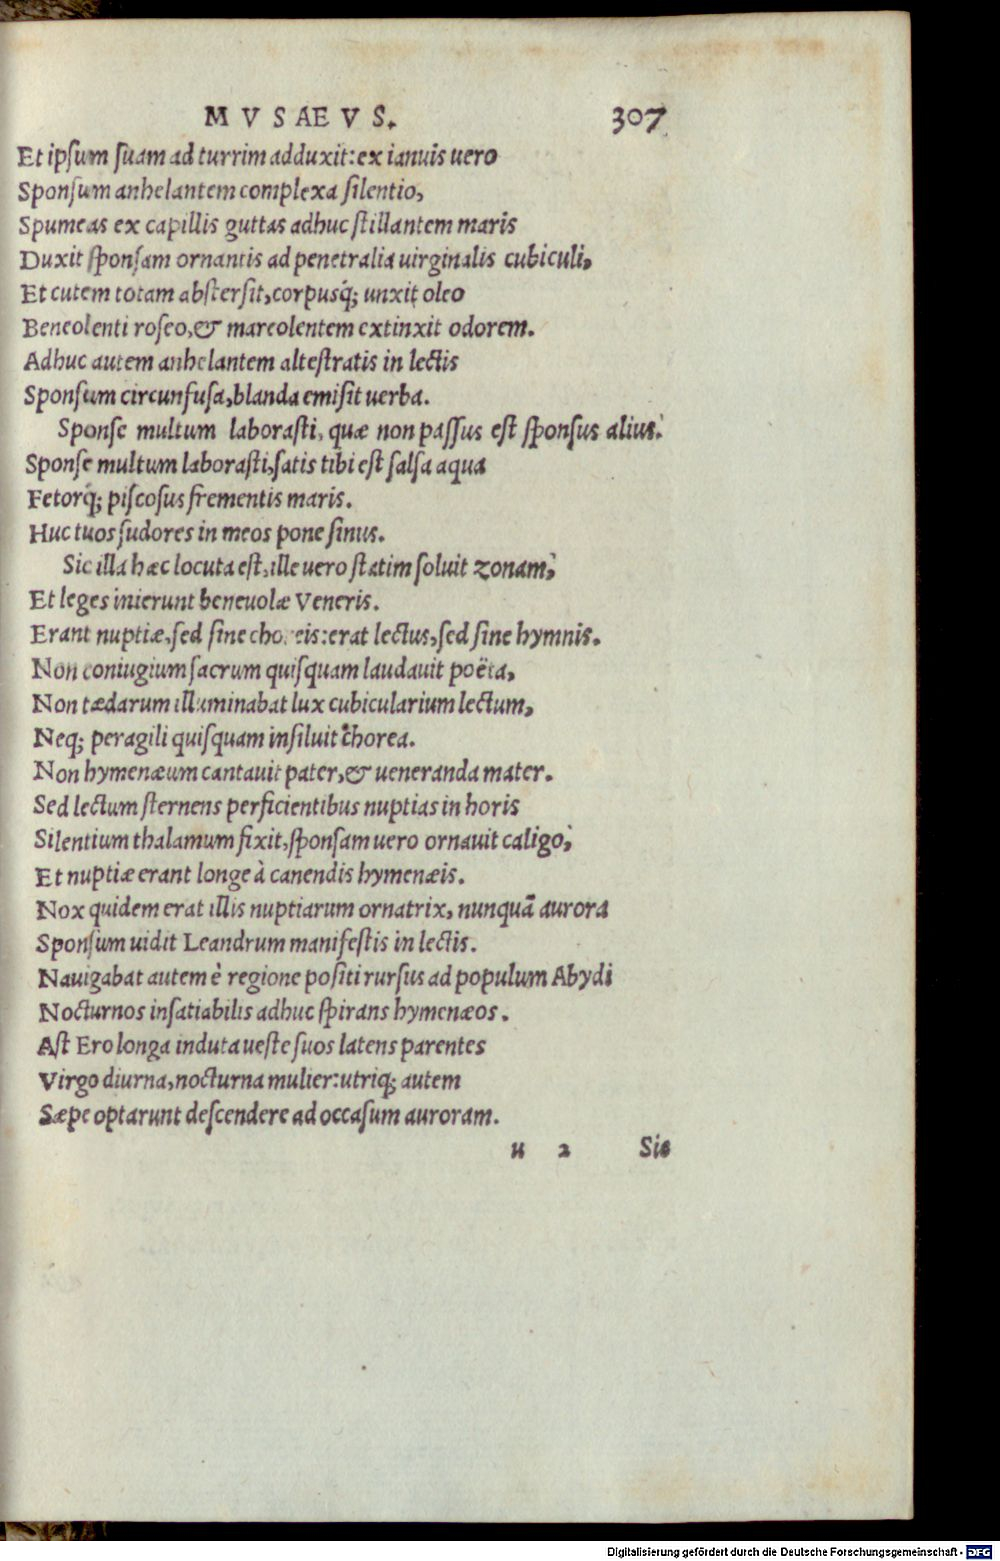 MVSAEVS. 307
Et ipsum suam ad turrim adduxit: ex ianuis uero
Sponsum anhelantem complexa silentio,
Spumeas ex capillis guttas adhuc stillantem maris
Duxit sponsam ornantis ad penetralia uirginalis cubiculi,
Et cutem totam abstersit, corpusq́; unxit oleo
Beneolenti roseo, & mareolentem extinxit odorem.
Adhuc autem anhelantem altestratis in lectis
Sponsum circunfusa, blanda emisit uerba.
Sponse multum laborasti, quæ non passus est sponsus alius:
Sponse multum laborasti, satis tibi est salsa aqua
Fetorq́; piscosus frementis maris.
Huc tuos sudores in meos pone sinus.
Sic illa hæc locuta est, ille uero statim soluit zonam;
Et leges inierunt beneuolæ Veneris.
Erant nuptiæ, sed sine choreis: erat lectus, sed sine hymnis.
Non coniugium sacrum quisquam laudauit poëta,
Non tædarum illuminabat lux cubicularium lectum,
Neq; peragili quisquam insiluit chorea.
Non hymenæum cantauit pater, & ueneranda mater.
Sed lectum sternens perficientibus nuptias in horis
Silentium thalamum fixit, sponsam uero ornauit caligo;
Et nuptiæ erant longe à canendis hymenæis.
Nox quidem erat illis nuptiarum ornatrix, nunquã aurora
Sponsum uidit Leandrum manifestis in lectis.
Nauigabat autem è regione positi rursus ad populum Abydi
Nocturnos insatiabilis adhuc spirans hymenæos.
Ast Ero longa induta ueste suos latens parentes
Virgo diurna, nocturna mulier: utriq; autem
Sæpe optarunt descendere ad occasum auroram.
u 2 Sic
Digitalisierung gefördert durch die Deutsche Forschungsgemeinschaft - DFG